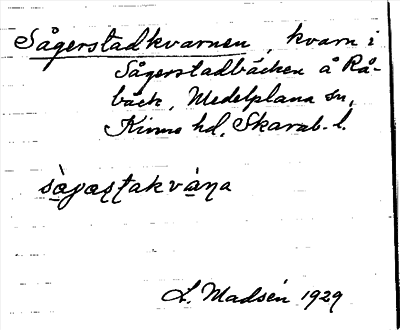 Sågerstadkvarnen, kvarn i
Sågerstadbäcken å Rå-
bäck, Medelplana sn,
Kinne hd, Skarab. l.
L. Madsén 1929